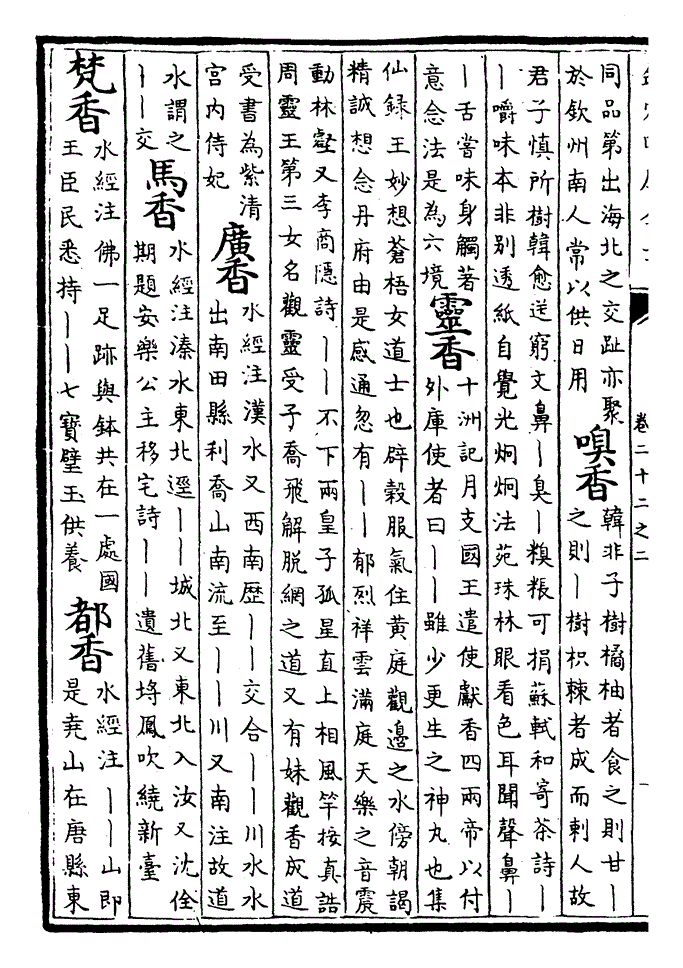 卷二十二之二
同品第出海北之交趾亦聚
於欽州南人常以供日用
嗅香
韓非子樹橘柚者食之則甘丨
之則丨樹枳棘者成而刺人故
君子慎所樹韓愈送窮文鼻丨臭丨糗粻可捐蘇軾和寄茶詩丨
丨嚼味本非别透紙自覺光炯炯法苑珠林眼看色耳聞聲鼻丨
丨舌嘗味身觸著
意念法是為六境
靈香
十洲記月支國王遣使獻香四兩帝以付
外庫使者曰丨丨雖少更生之神丸也集
仙録王妙想蒼梧女道士也辟穀服氣住黄庭觀邊之水傍朝謁
精誠想念丹府由是感通忽有丨丨郁烈祥雲滿庭天樂之音震
動林壑又李商隱詩丨丨不下兩皇子孤星直上相風竿按真誥
周靈王第三女名觀靈受子喬飛解脱網之道又有妹觀香成道
受書為紫清
宫内侍妃
廣香
水經注漢水又西南歴丨丨交合丨丨川水水
出南田縣利喬山南流至丨丨川又南注故道
水謂之
丨丨交
馬香
水經注溱水東北逕丨丨城北又東北入汝又沈佺
期題安樂公主移宅詩丨丨遺舊埒鳳吹繞新臺
梵香
水經注佛一足跡與鉢共在一處國
王臣民悉持丨丨七寶璧玉供養
都香
水經注丨丨山即
是堯山在唐縣東